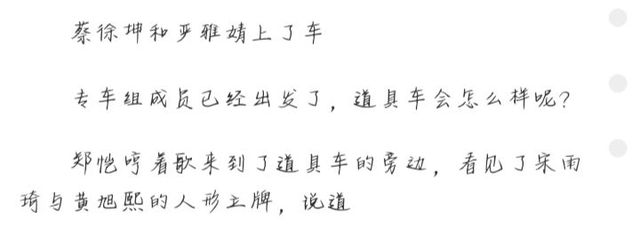 蔡徐坤和严雅婧上了车
专车组成员已经出发了，道具车会怎么样呢？
郑恺哼着歌来到了道具车的旁边，看见了宋雨
琦与黄旭熙的人形立牌，说道